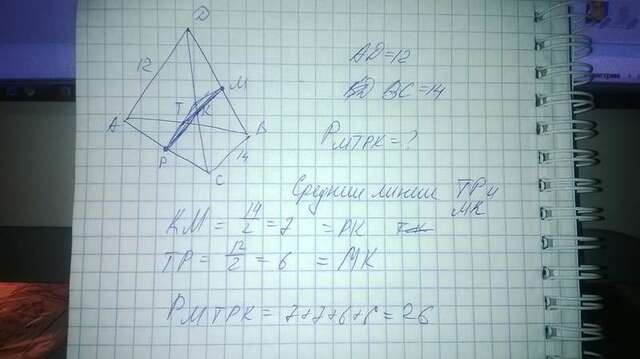 D
12
M
T
K
A
B
P
14
C
AD=12
BC=14
PмTPK=?
Средние линии TP и
MK
KM = 14/2 = 7 = PK
TP = 12/2 = 6 = MK
PмTPK = 7+7+6+6=26